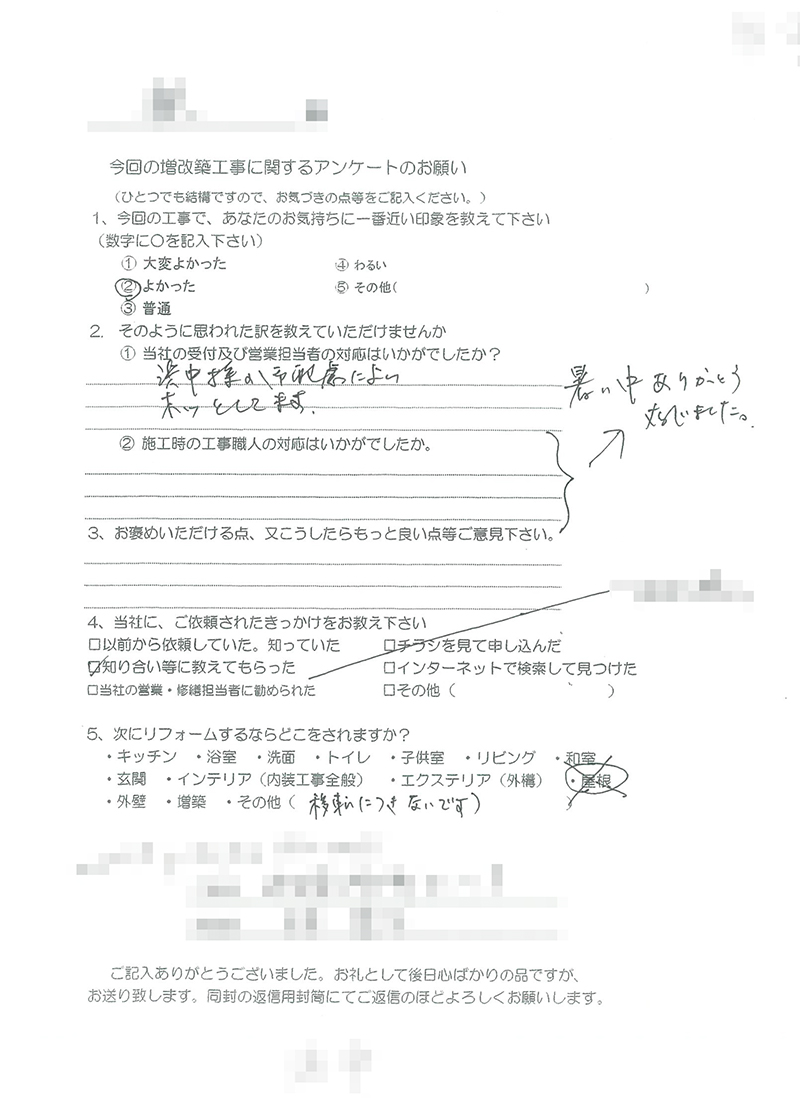 今回の増改築工事に関するアンケートのお願い
（ひとつでも結構ですので、お気づきの点等をご記入ください。）
1、今回の工事で、あなたのお気持ちに一番近い印象を教えて下さい
（数字に〇を記入下さい）
① 大変よかった ④ わるい
② よかった ⑤ その他( )
③ 普通
2. そのように思われた訳を教えていただけませんか
① 当社の受付及び営業担当者の対応はいかがでしたか？
浜中様の御配慮により
ホッとしてます.
暑い中ありがとう
② 施工時の工事職人の対応はいかがでしたか。
3、お褒めいただける点、又こうしたらもっと良い点等ご意見下さい。
4、当社に、ご依頼されたきっかけをお教え下さい
□以前から依頼していた。知っていた □チラシを見て申し込んだ
☑知り合い等に教えてもらった □インターネットで検索して見つけた
□当社の営業・修繕担当者に勧められた □その他（ ）
5、次にリフォームするならどこをされますか？
・キッチン ・浴室 ・洗面 ・トイレ ・子供室 ・リビング ・和室
・玄関 ・インテリア（内装工事全般） ・エクステリア（外構） ・屋根
・外壁 ・増築 ・その他（ 移転につきないです ）
ご記入ありがとうございました。お礼として後日心ばかりの品ですが、
お送り致します。同封の返信用封筒にてご返信のほどよろしくお願いします。